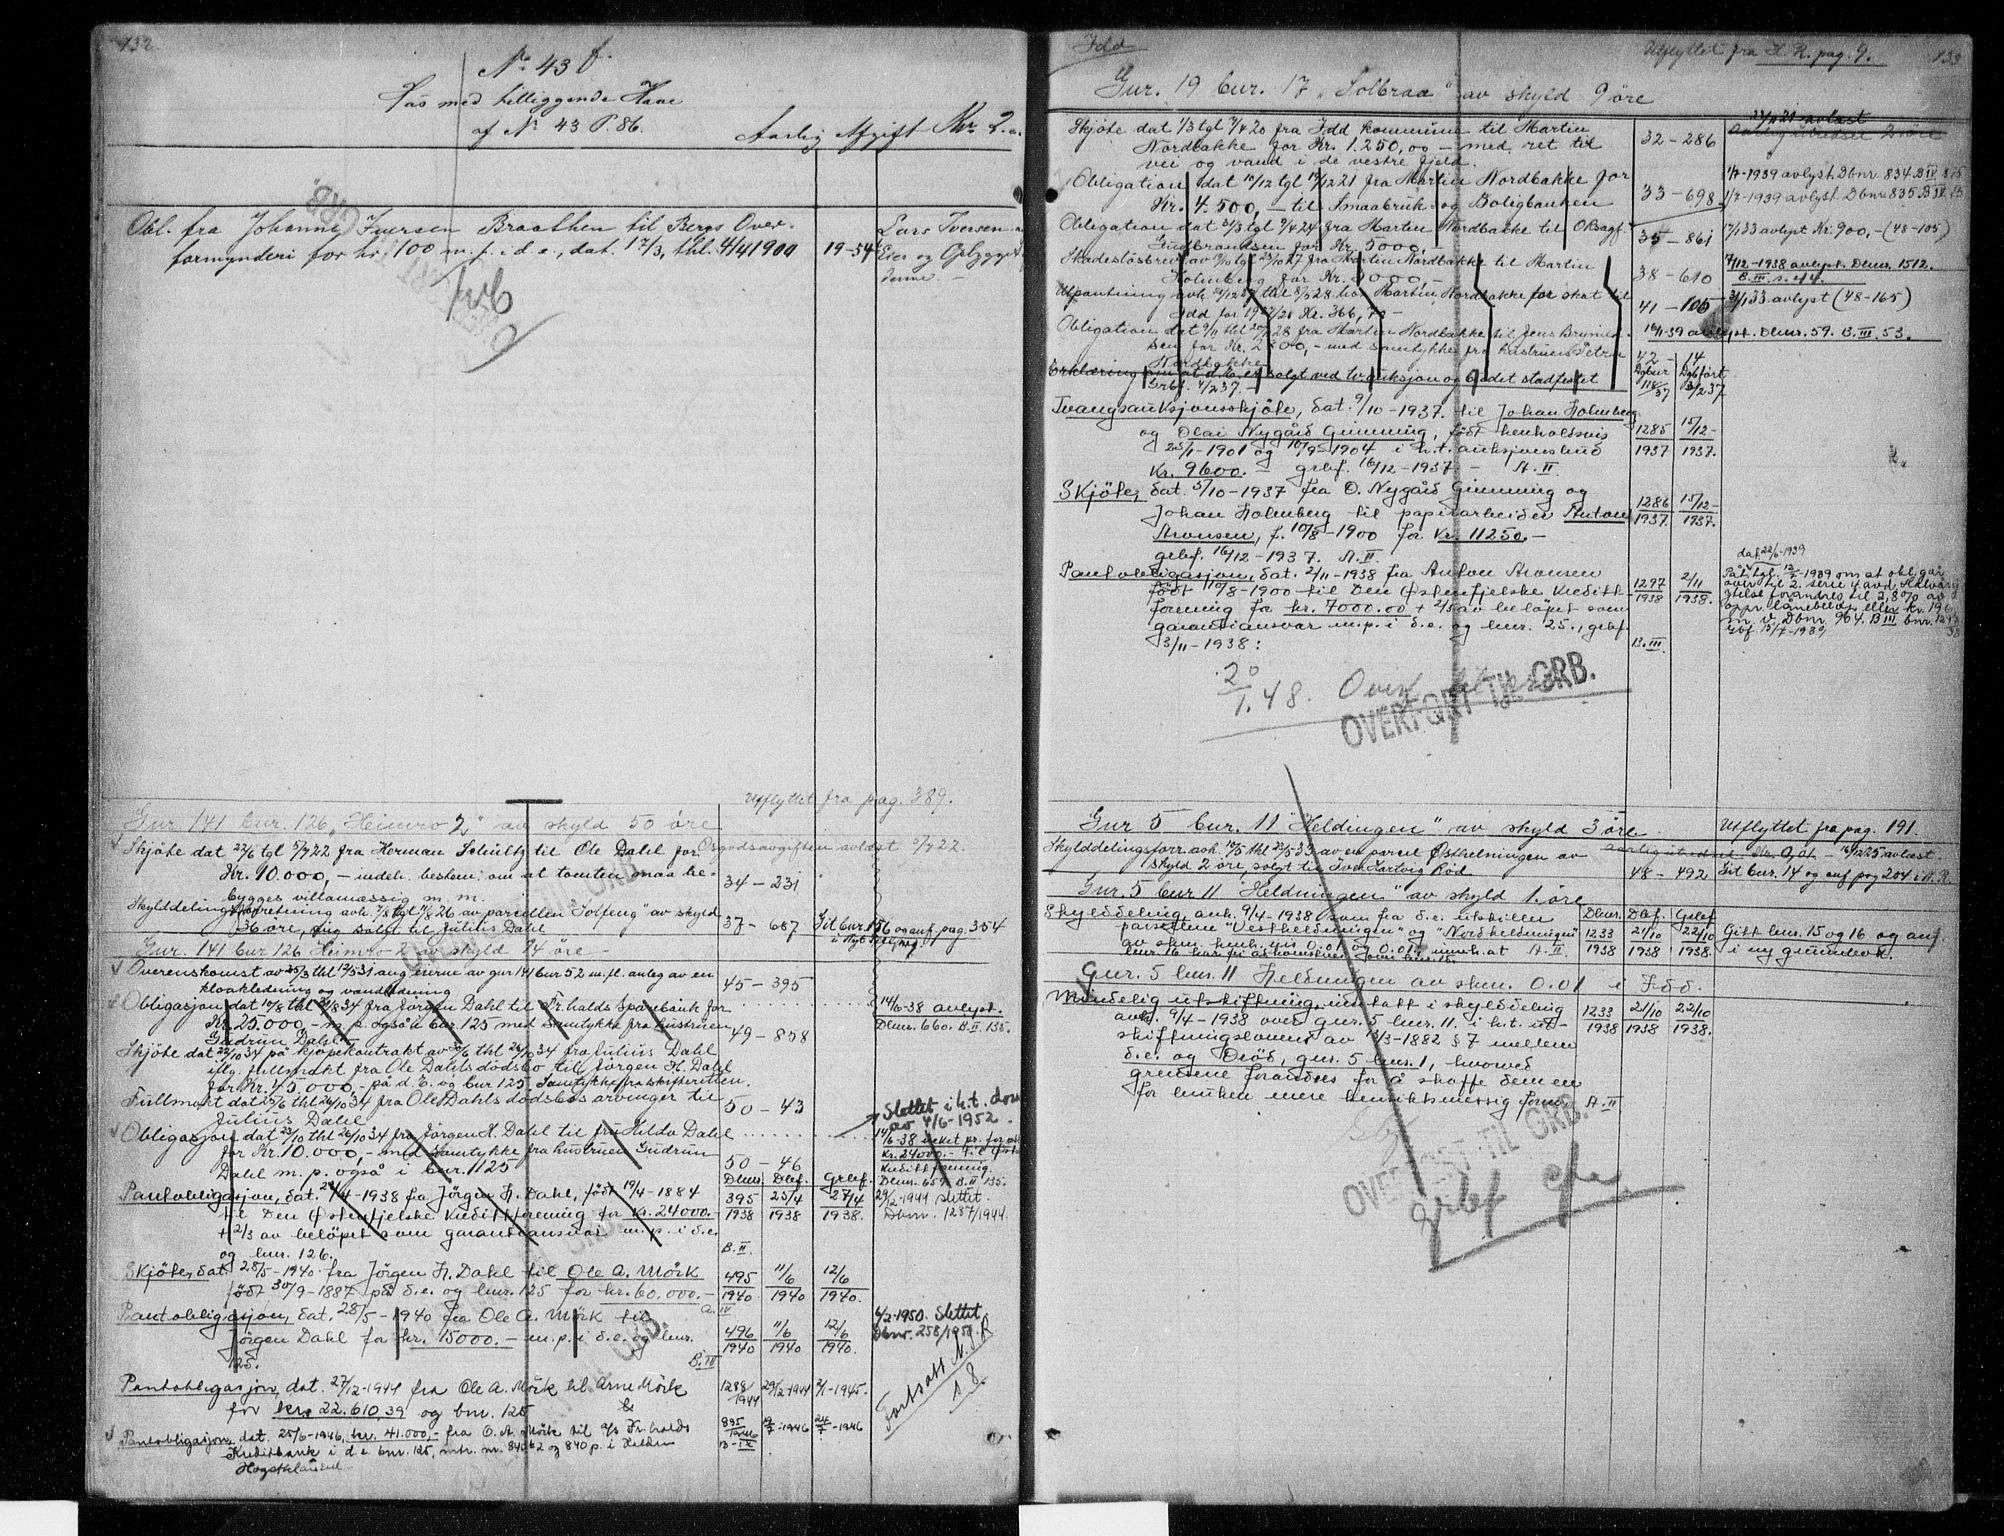 132.
No 43 b.
Plas med tilliggende Have
af No 43 P. 86.
Aarlig Afgift Kr. 2.
Obl. fra Johanne Iversen Braathen til Bergs Over-
formynderi for kr 100 m. p. i d. e., dat. 17/3, thl. 4/4 1900
19-54
Lars Iversen
Eier og Gebygget
denne. -
OVERFØRT TIL GRB.
Utflyttet fra pag. 389.
Gnr 141 bnr. 126 "Heimro 2" av skyld 50 öre
Skjöte dat 22/6 tgl 5/7 22 fra Herman Schultz til Ole Dahl for
Kr. 10.000,- indeh. bestem. om at tomten maa be-
bygges villamæssig m. m.
34-231
Skylddelingsforretning avh. 7/8 tgl 11/8 26 av parcellen "Solfeng" av skyld
36 öre, solgt til Julius Dahl
37-687
Git bnr. 156 og anf. pag. 354
Gnr. 141 bnr 126 Heimro 2 av skyld 14 öre -
Overenskomst av 25/3 thl 12/5 31 ang. eierne av gnr 141 bnr 52 m. fl. anleg av en
kloakledning og vandledning
45-395
Obligasjon dat 10/8 thl 21/8 34 fra Jørgen Dahl til Fr.halds Sparebank for
Kr. 25.000,- m. p. også i bnr. 125 med samtykke fra hustruen
Gudrun Dahl
49-858
14/6-38 avlyst.
Dbnr. 660. B. II 135.
Skjöte dat 22/10 34 på kjøpekontrakt av 30/6 thl 26/10 34 fra Julius Dahl
iflg. fullmakt fra Ole Dahls dødsbo til Jørgen H. Dahl
for Kr. 45.000,- på d. E. og bnr 125. Samtykke fra skifteretten.
Fullmakt dat 25/6 thl 26/10 34 fra Ole Dahls dødsbos arvinger til
Julius Dahl
50-43
Slettet i h.t. dom
av 4/6-1952.
Obligasjon dat 23/10 thl 26/10 34 fra Jørgen H. Dahl til fru Hilda Dahl
for Kr. 10.000,- med samtykke fra hustruen Gudrun
Dahl m. p. også i bnr. 125
50-46
14/6-38 veket pr. for obl
Kr. 24000.- til Østenf.
Kredittforening.
Dbnr. 659. B. II 135.
Dbnr. Dbf. Grbf.
Pantobligasjon, dat. 21/4-1938 fra Jörgen H. Dahl, født 19/4-1884
til Den Østenfjelske Kredittforening for kr. 24000.-
+ 2/3 av beløpet som garantiansvar m. p. i d.e.
og bnr. 126.
395 25/4 27/4
1938 1938 1938.
B. II.
29/12-1944 slettet.
Dbnr. 1287/1944.
Skjöte, dat. 28/5-1940 fra Jörgen H. Dahl til Ole A. Mörk
født 30/9-1887 på d.e. og bnr. 125 for kr. 60,000.-
495 11/6 12/6
1940 1940 1940.
A. IV
Pantobligasjon, dat. 28/5-1940 fra Ole A. Mörk til
Jörgen Dahl for kr. 15000.- m. p. i d.e. og bnr.
125.
496 11/6 12/6
1940 1940 1940.
B. IV
6/2-1950. Slettet.
Dbnr. 258/1950.
Pantobligasjon, dat. 27/12-1944 fra Ole A. Mörk til Arne Mörk
for kr. 22.610,39 og bnr. 125
1288/1944 29/12-1944 2/1-1945.
Fortsatt N. R
s 8.
Pantobligasjon, dat. 25/6-1946, kr. 41.000,- fra O. A. Mörk til a/s Fr.halds
Kreditbank i d.e. bnr. 125, mtr. nr. 840 b2 og 840 p. i Halden
895
1946
Idd
Utflyttet fra H. R. pag. 9.
133
Gnr. 19 bnr. 17 "Solbraa" av skyld 9 öre
Skjöte dat 1/3 tgl 7/4 20 fra Idd kommune til Martin
Nordbakke for Kr. 1.250,00 - med ret til
vei og vand i de vestre fjeld.
32-286
Obligation dat 10/12 tgl 17/12 21 fra Martin Nordbakke for
Kr. 4.500,- til Smaabruk og Boligbanken
33-698
1/7-1939 avlyst Dbnr. 834. B IV
1/7-1939 avlyst Dbnr. 835. B IV
Obligation dat 31/3 tgl 7/4 24 fra Martin Nordbakke til Oksagf.
Gudbrandsen for Kr. 5000,-
35-861
17/1 33 avlyst Kr. 900,- (48-105)
Skadesløsbrev av 19/10 tgl 23/10 27 fra Martin Nordbakke til Martin
Holmberg for Kr. 3000,-
38-610
17/12-1938 avlyst. Dbnr. 1512.
Utpantning avh 21/12 27 thl 5/1 28 hos Martin Nordbakke for skat til
Idd for 1927/28 Kr. 366,70 -
41-105
31/1 33 avlyst (48-165)
Obligation dat 9/11 thl 20/11 28 fra Martin Nordbakke til Jens Brynild-
sen for Kr. 2800,- med samtykke fra hustruen Petra
Nordbakke
42-14
16/1-39 avlyst. Dbnr. 59. B. III 53.
Erklæring om at d. E. er solgt ved tv.auksjon og budet stadfestet
Grbf. 4/2 37.
Tvangsauksjonsskjöte, dat. 9/10-1937. til Johan Holmberg
og Olai Nygård Gimming, født henholdsvis
25/1-1901 og 10/9-1904 i h.t. auksjonsbud
Kr. 9600.- grbf. 16/12-1937 - A. II.
1285 15/12-
1937 1937.
Skjöte, dat. 5/10-1937 fra O. Nygård Gimming og
Johan Holmberg til papirarbeider Anton
Aronsen, f. 10/8-1900 for Kr. 11250.-
grbf. 16/12-1937. A. II
1286 15/12-
1937 1937.
Pantobligasjon, dat. 2/11-1938 fra Anton Aronsen
født 10/8-1900 til Den Østenfjelske Kreditt-
forening for kr. 7000.00 + 2/3 av beløpet som
garantiansvar m. p. i d.e. og bnr. 25., grbf.
3/11-1938:
1297 2/11
1938 1938.
B. III
dat. 22/6-1939
Påt. tgl. 12/7-1939 om at obl. går
over til 2. serie 4 avd. Halvårlig
ytelse forandres til 2,8% av
oppr. lånebeløp eller kr. 196
m. v. Dbnr. 964. B III bnr.
Gbf 15/7-1939
20/1.48.
OVERFØRT TIL GRB.
Gnr 5 bnr. 11 "Heldningen" av skyld 3 öre
Utflyttet fra pag. 191.
Skylddelingsforr. avh. 19/5 thl 23/5 33 av en parcel Østhelningen av
skyld 2 öre, solgt til Ivar Hartvig Röd
48-492
Git bnr. 14 og anf pag 204 i N. R.
Gnr. 5 bnr 11 "Heldningen" av skyld 1. öre
Skylddeling, avh. 9/4-1938 som fra d. e. utskiller
parsellene "Vestheldningen" og "Nordheldningen"
av skm. henh.vis 0.01 og 0.01
A-II
Dbnr. Dbf. Grbf
1233 21/10 22/10
1938 1938 1938.
Gitt bnr. 15 og 16 og anf
i ny grunnbok.
Gnr. 5 bnr. 11 Heldningen av skm. 0.01 i Idd.
Mindelig utskiftning inntatt i skylddeling
avh. 9/4-1938 over gnr. 5 bnr. 11. i h.t. ut-
skiftningslovens av 13/3-1882 § 7 mellem
d.e. og Diöd, gnr. 5 bnr. 1, hvorved
grensene forandres for å skaffe dem en
for bruken mere hensiktsmessig form.
A-II
1233 21/10 22/10
1938 1938 1938.
OVERFØRT TIL GRB.